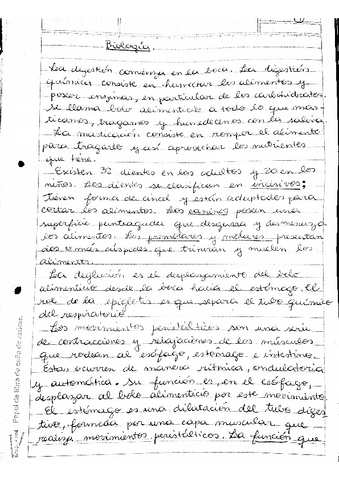 Biología.
La digestión comienza en la boca. La digestión
química consiste en humectar los alimentos y
poseer enzimas, en particular de los carbohidratos.
Se llama bolo alimenticio a todo lo que mas-
ticamos, tragamos y humedecemos con la saliva.
La masticación consiste en romper el alimento
para tragarlo y así aprovechar los nutrientes
que tiene.
Existen 32 dientes en los adultos y 20 en los
niños. Los dientes se clasifican en incisivos:
tienen forma de cincel y están adaptados para
cortar los alimentos. Los caninos poseen una
superficie puntiaguda que desgarra y desmenuza
los alimentos. Los premolares y molares presentan
dos o más cúspides que trituran y muelen los
alimentos.
La deglusión es el desplazamiento del bolo
alimenticio desde la boca hacia el estómago. El
rol de la epiglotis es que separa el tubo químico
del respiratorio.
Los movimientos peristálticos son una serie
de contracciones y relajaciones de los músculos
que rodean al esófago, estómago e intestino.
Estas ocurren de manera rítmica, ondulatoria
y automática. Su función es, en el esófago,
desplazar al bolo alimenticio por este movimiento.
El estómago es una dilatación del tubo diges
tivo, formada por una capa muscular que
realiza movimientos peristálticos. La función que